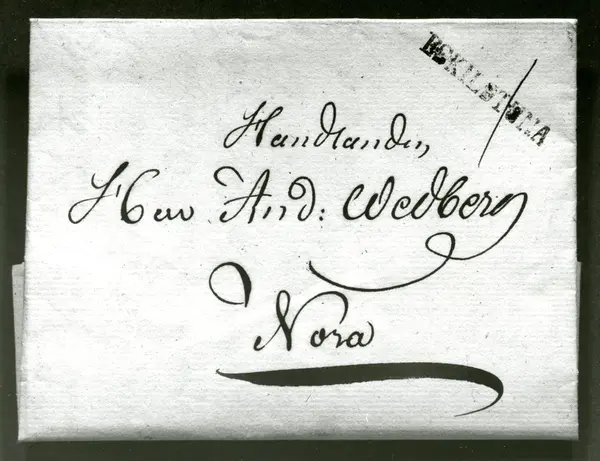 ESKILSTUNA
Handlanden
Herr And: Wedberg
Nora